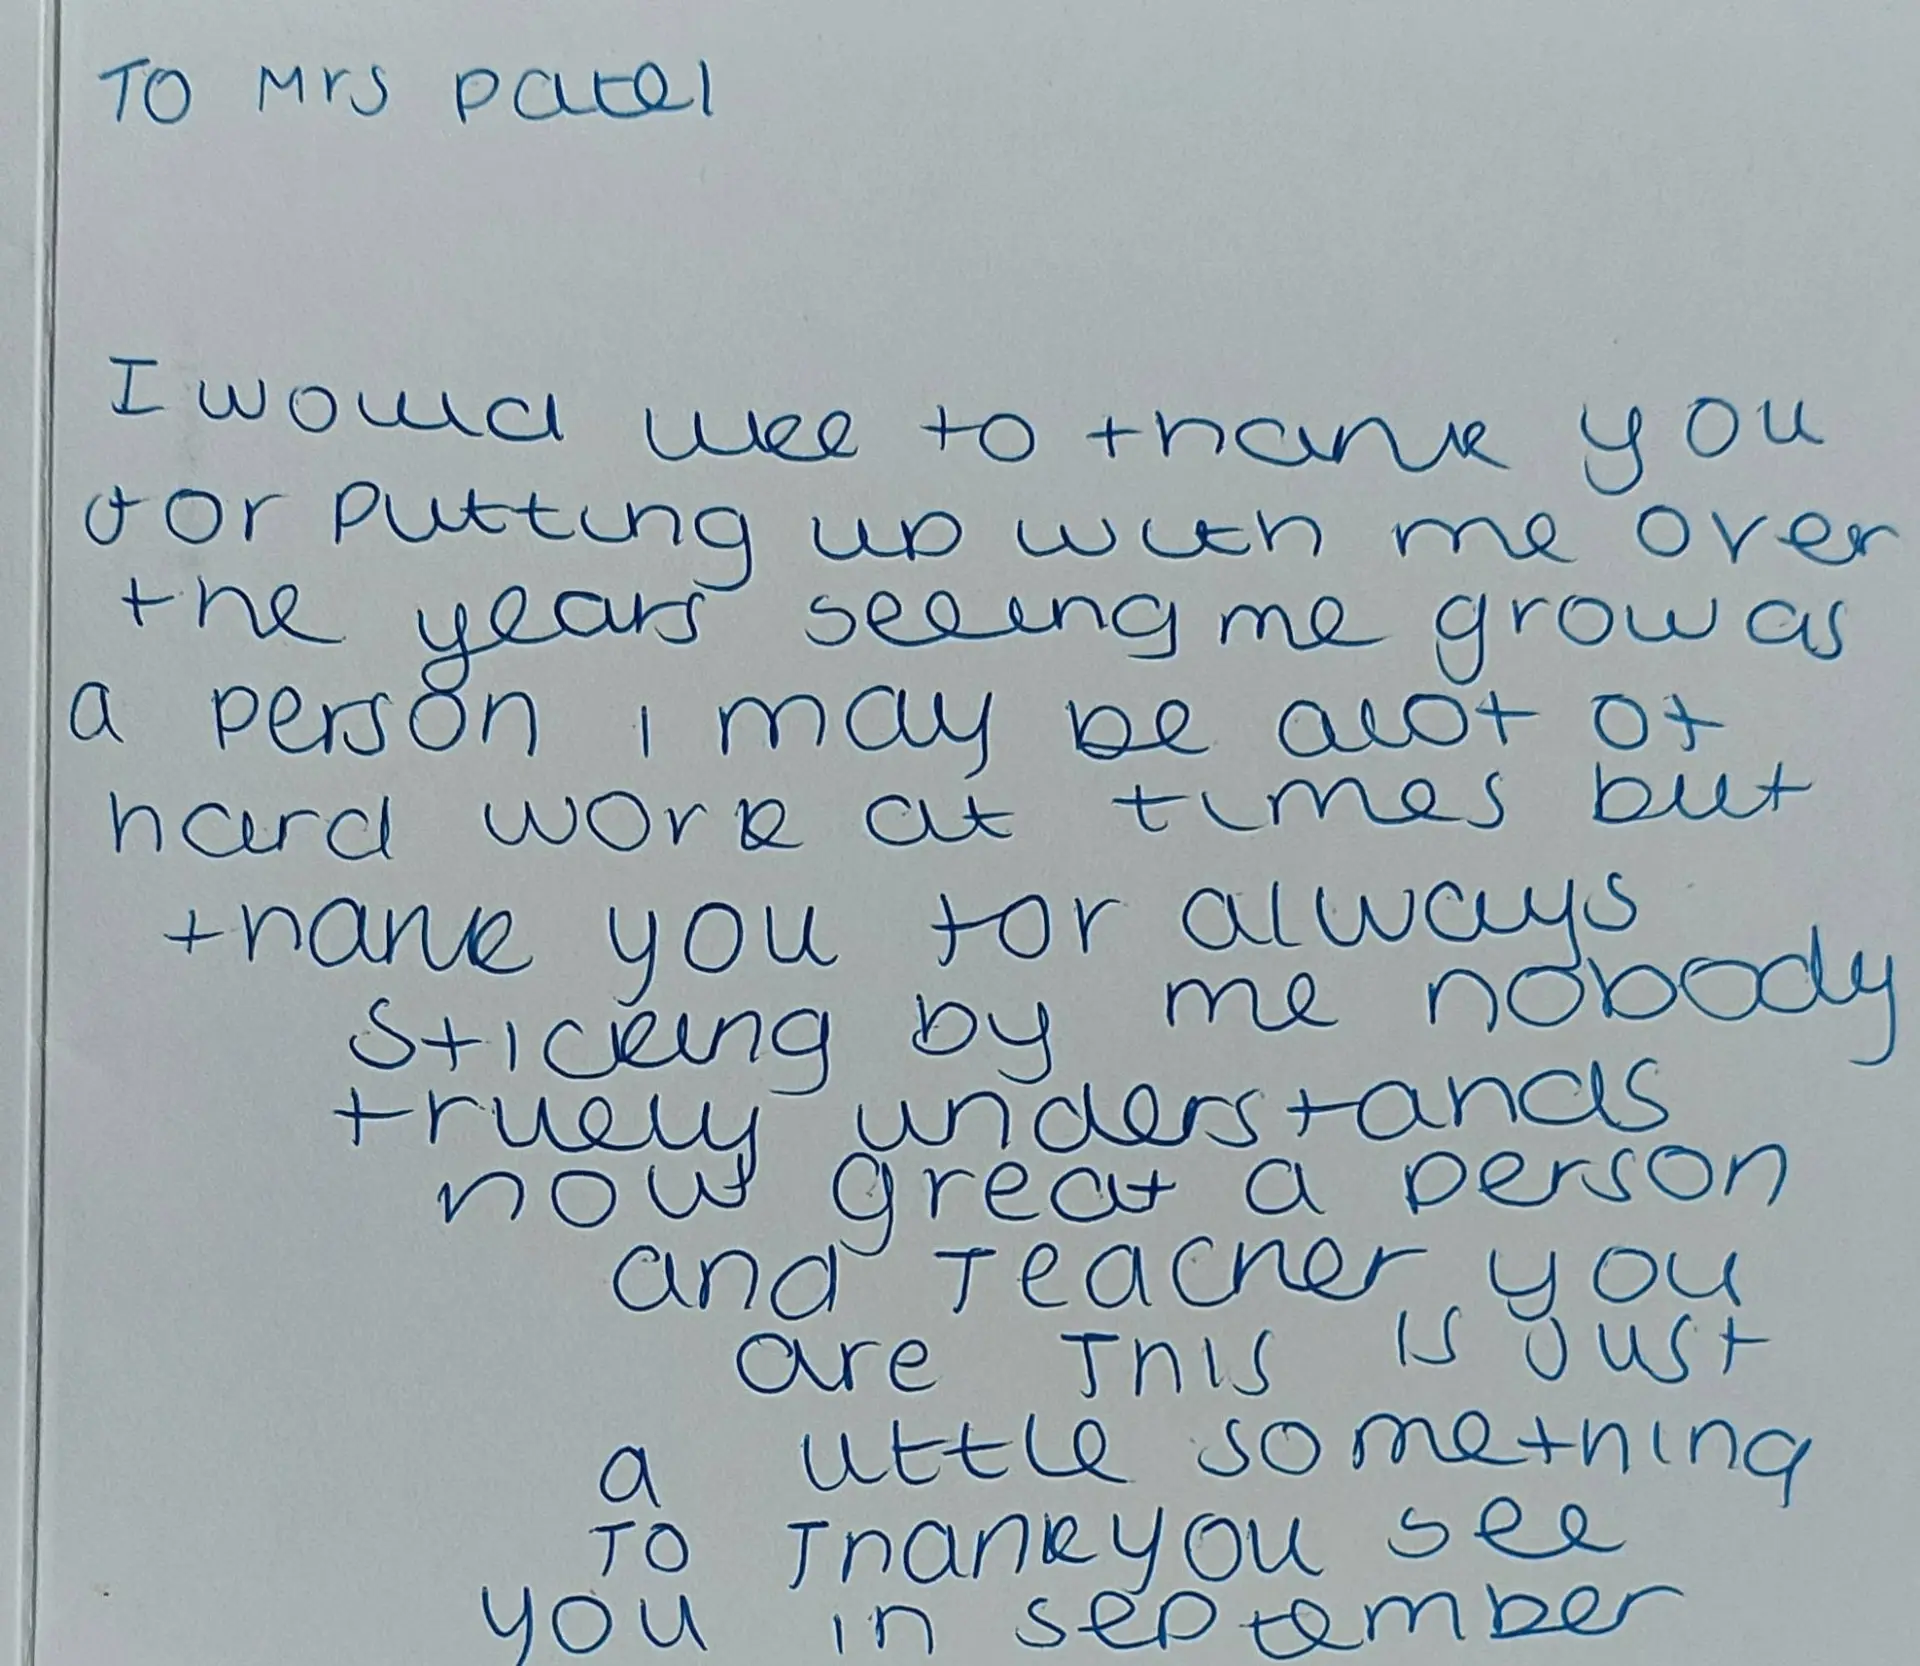 To Mrs Patel
I would like to thank you
for putting up with me over
the years seeing me grow as
a person i may be alot of
hard work at times but
thank you for always
sticking by me nobody
truely understands
how great a person
and Teacher you
are This is Just
a little something
To Thankyou see
you in september